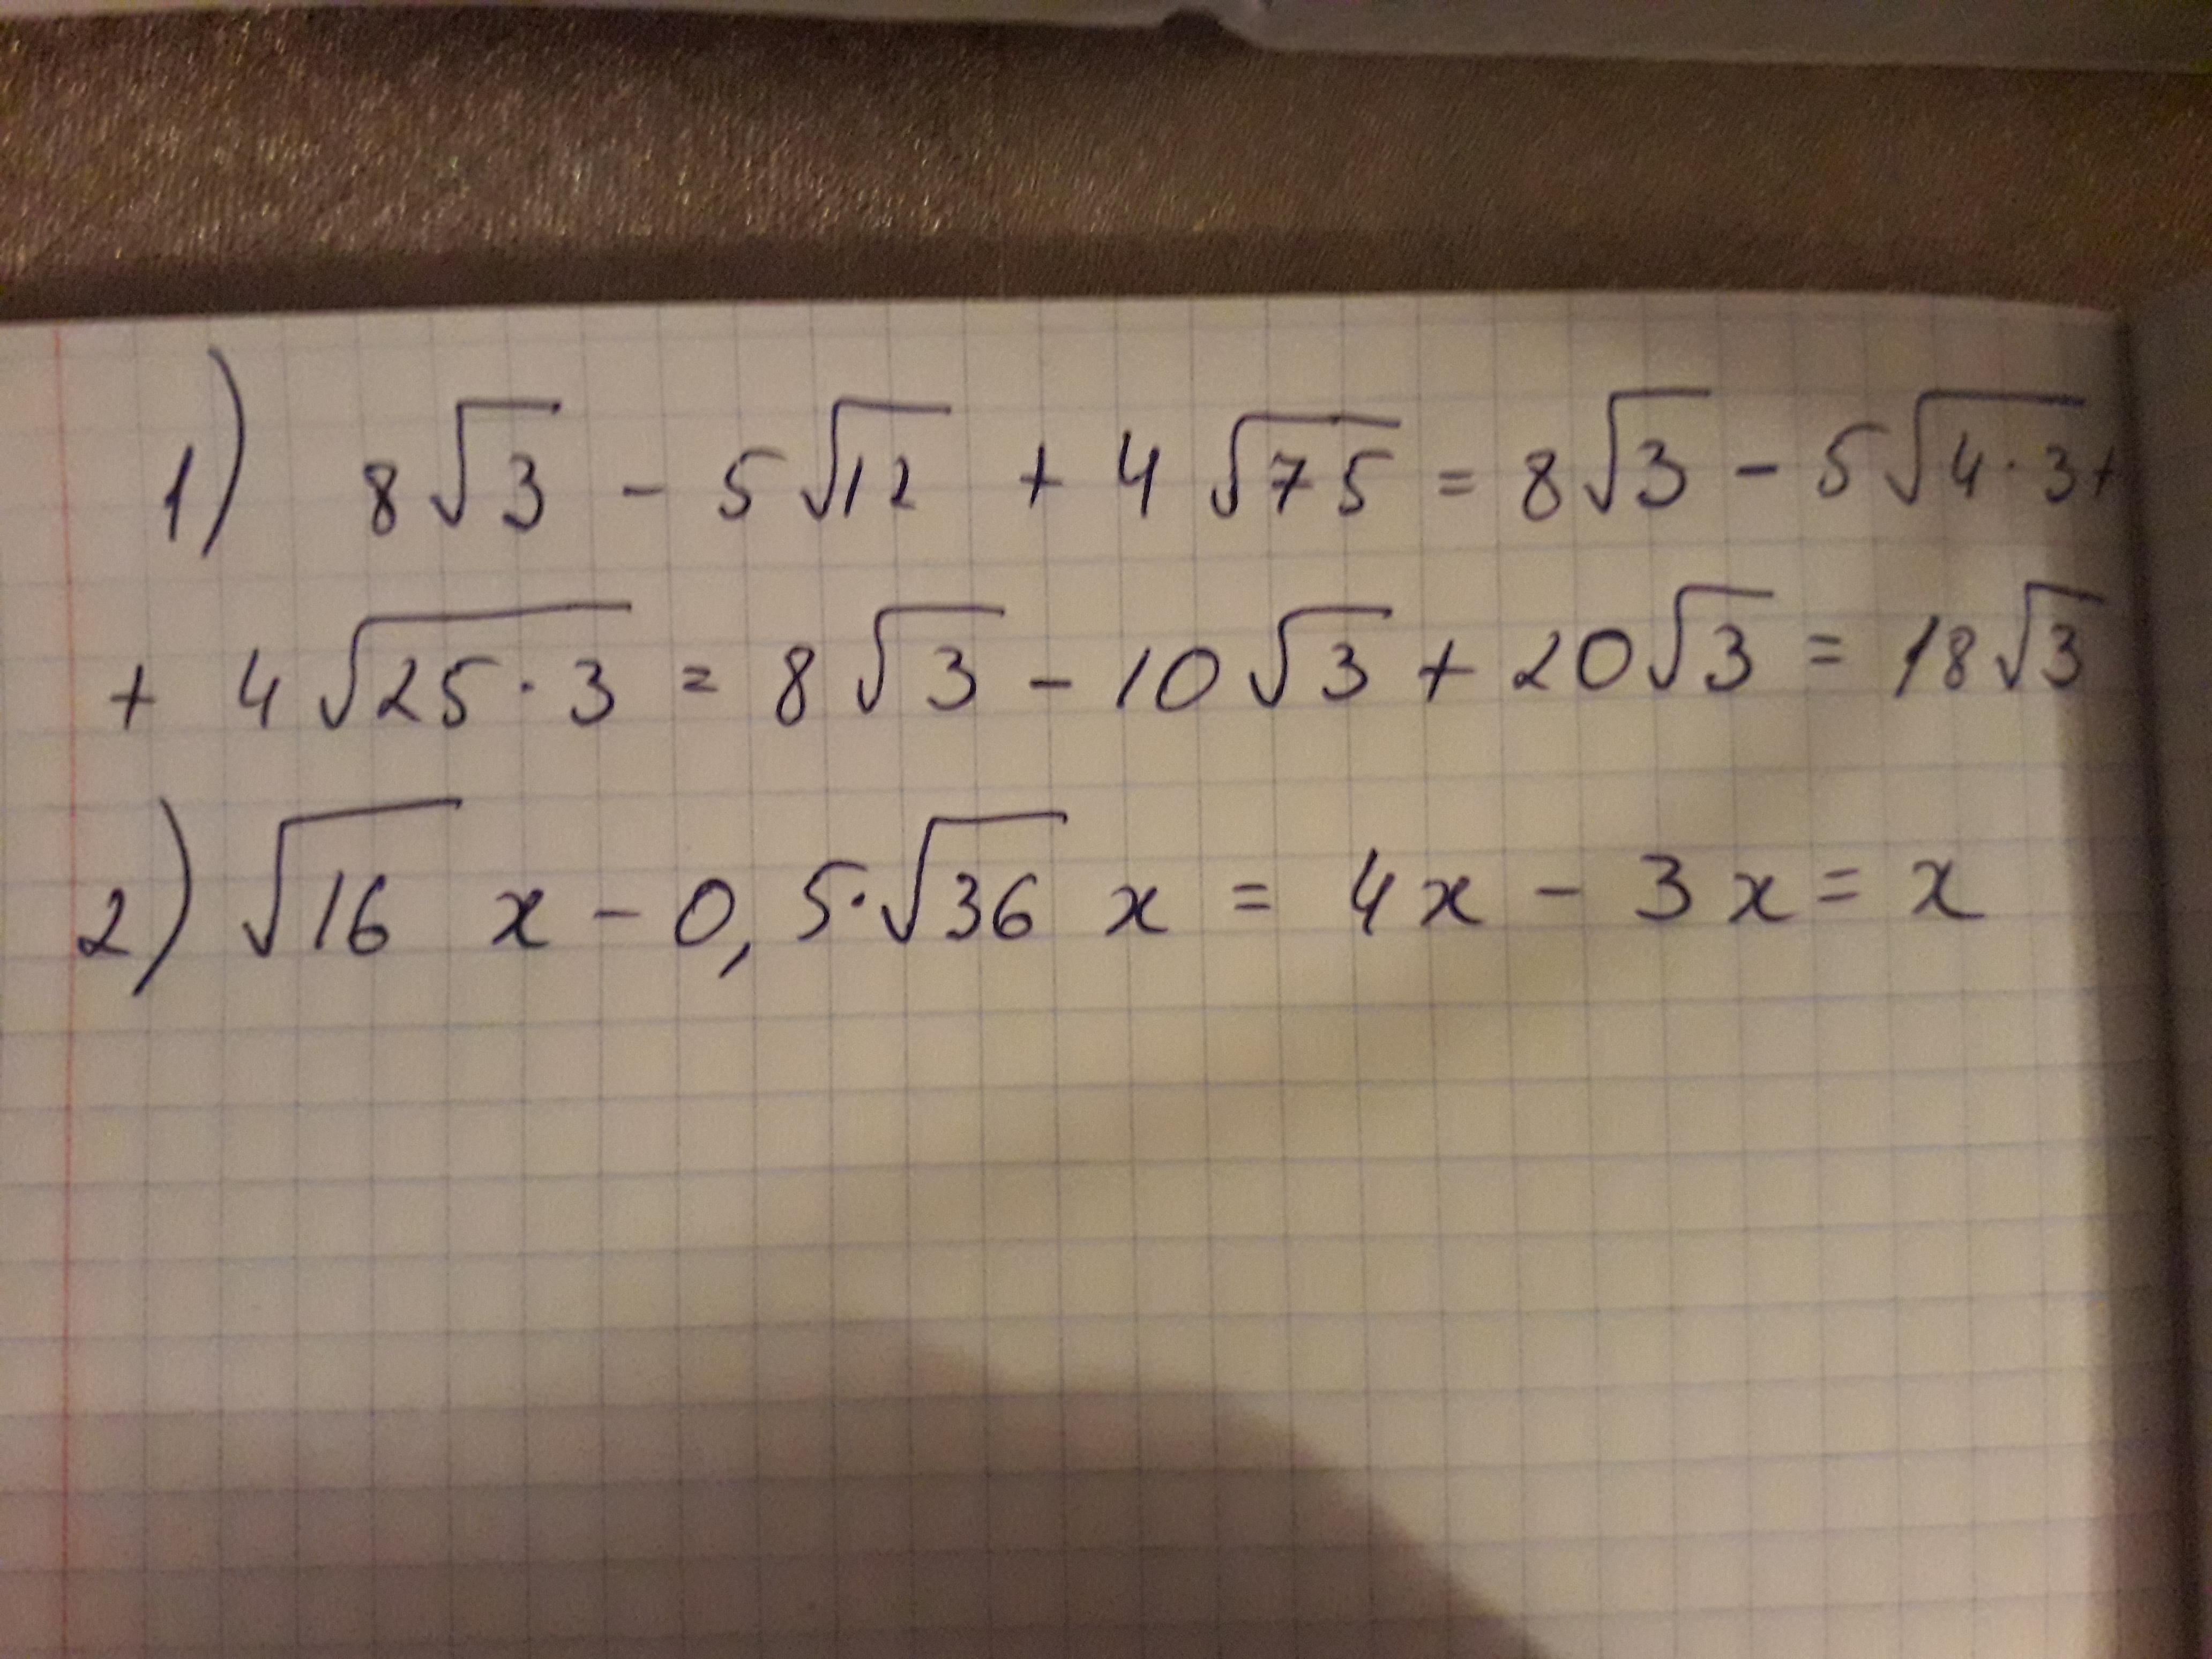 1) 8√3 - 5√12 + 4√75 = 8√3 - 5√4·3 +
+ 4√25·3 = 8√3 - 10√3 + 20√3 = 18√3
2) √16 x - 0,5·√36 x = 4x - 3x = x